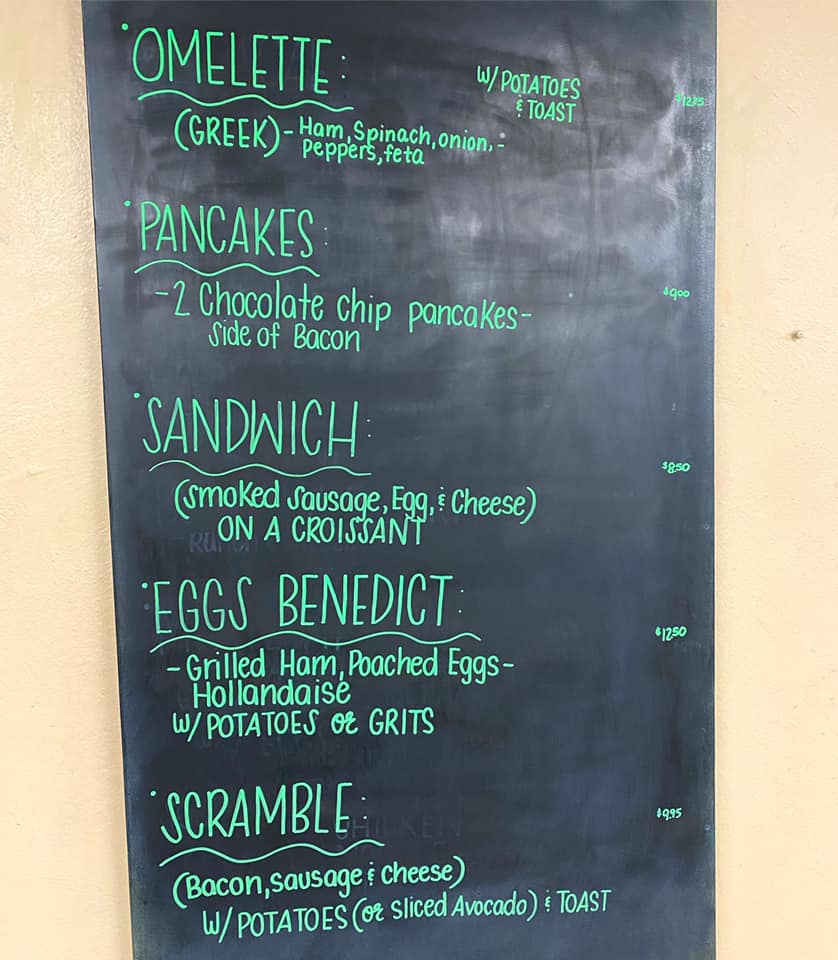 • OMELETTE:
W/ POTATOES
& TOAST
(GREEK) - Ham, Spinach, onion, -
Peppers, feta
• PANCAKES:
$9.00
- 2 Chocolate chip pancakes -
Side of Bacon
• SANDWICH:
$8.50
(Smoked Sausage, Egg, & Cheese)
ON A CROISSANT
• EGGS BENEDICT:
$12.50
- Grilled Ham, Poached Eggs -
Hollandaise
W/ POTATOES or GRITS
• SCRAMBLE:
$9.95
(Bacon, sausage & cheese)
W/ POTATOES (or Sliced Avocado) & TOAST